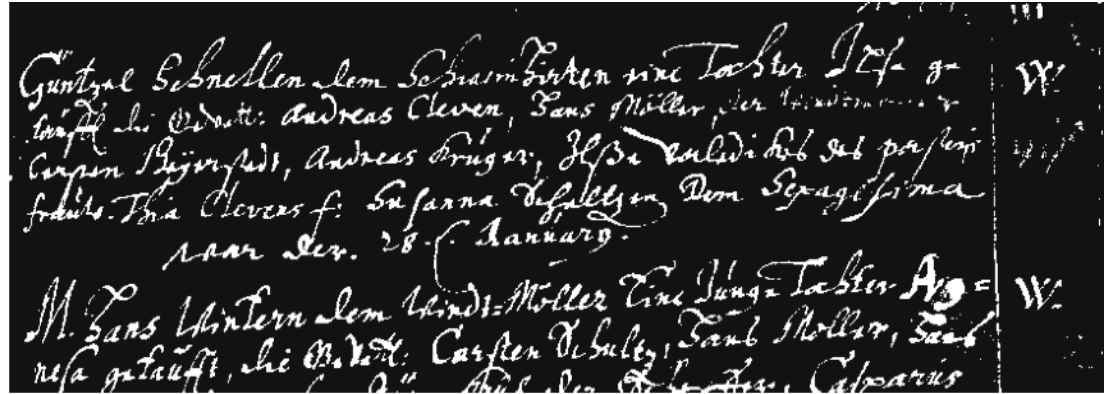 Güntzel Schnellen dem Schwein Hirten eine Tochter Ilse ge
taufft die Gevatt: Andreas Cleven, Hans Möller, der
W.
Carsten Beyerstadt, Andreas Krüger, Ilße des
Thia Clevens f: Susanna Schultzen Dom Sexagesima
war der. 28. January.
M. Hans Wintern dem Windt=Möller Eine Junge Tochter Ag=
W.
nesa getaufft, die Gevatt: Carsten Schultz, Hans Möller, Hans
der Casparus